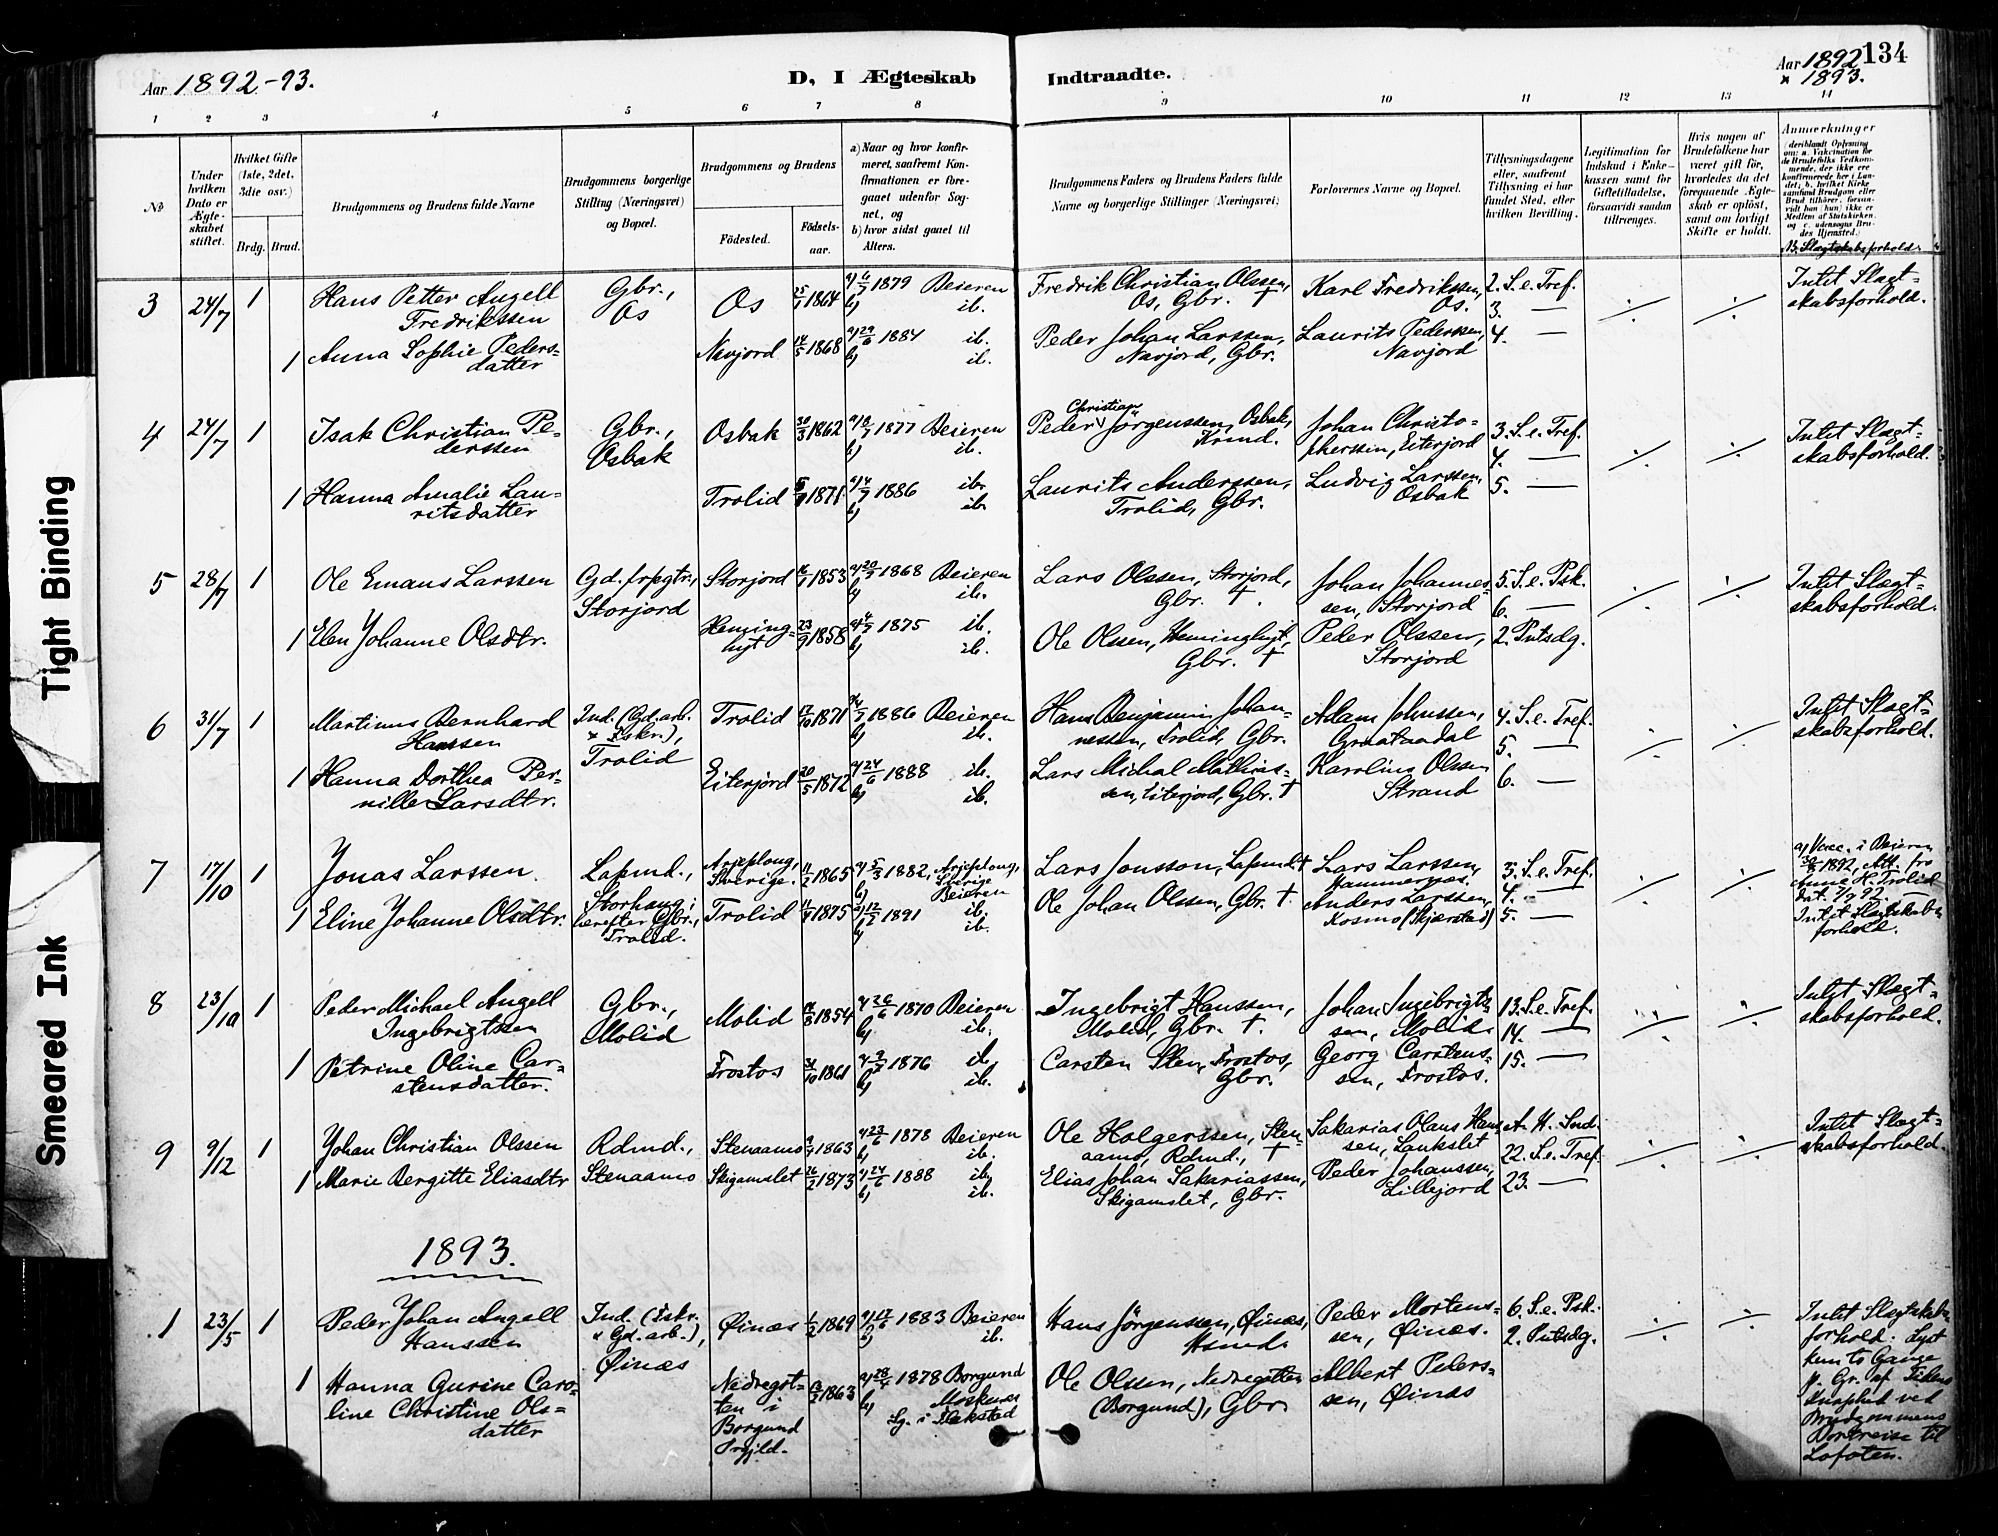 Aar 1892-93.
D, I Ægteskab
Indtraadte.
Aar 1892 134
* 1893.
1 2 3 4 5 6 7 8 9 10 11 12 13 14
No
Under hvilken Dato er Ægteskabet stiftet.
Hvilket Gifte (1ste, 2det, 3die osv.)
Brdg. Brud.
Brudgommens og Brudens fulde Navne
Brudgommens borgerlige Stilling (Næringsvei) og Bopæl.
Brudgommens og Brudens
Fødested.
Fødselsaar.
a) Naar og hvor konfirmeret, saafremt Konfirmationen er foregaaet udenfor Sognet, og
b) hvor sidst gaaet til Alters.
Brudgommens Faders og Brudens Faders fulde Navne og borgerlige Stillinger (Næringsvei)
Forlovernes Navne og Bopæl.
Tillysningsdagene eller, saafremt Tillysning ei har fundet Sted, efter hvilken Bevilling.
Legitimation for Indskud i Enkekassen samt for Giftetilladelse, forsaavidt saadan tiltrenges.
Hvis nogen af Brudefolkene har været gift før, hvorledes da det foregaaende Ægteskab er opløst, samt om lovligt Skifte er holdt.
Anmerkninger
3 24/7 1 Hans Petter Angell Fredrikssen
Gbr., Os
Os 25/7 1864
a) 6/7 1879 Beieren
b) ib.
Fredrik Christian Olssen, Os, Gbr. †
Karl Fredrikssen, Os.
2. S. e. Tref.
3. —
4. —
Intet Slægtskabsforhold.
1 Anna Sophie Pedersdatter
Navjord 14/5 1868
a) 29/6 1884 ib.
b) ib.
Peder Johan Larssen, Navjord, Gbr.
Laurits Pederssen, Navjord
4 24/7 1 Isak Christian Pederssen
Gbr., Osbak
Osbak 30/3 1862
1877 Beieren
b) ib.
Peder Christian Jörgenssen, Osbak,
Johan Christophersen, Eiterjord
3. S. e. Tref.
4. —
5. —
Intet Slægtskabsforhold.
1 Hanna Amalie Lauritsdatter
Trolid 1871
a) 4/7 1886 ib.
b) ib.
Laurits Anderssen, Trolid, Gbr.
Ludvig Larssen, Osbak
5 28/7 1 Ole Emans Larssen
Storjord
Storjord 1853
1868 Beieren
b) ib.
Lars Olssen, Storjord, Gbr. †.
Johan Johannessen, Storjord
5. S. e. Psk.
6. —
2. Pntsdg.
Intet Slægtskabsforhold.
1 Elen Johanne Olsdtr.
Heminghyt 23/9 1858
a) 4/7 1875 ib.
b) ib.
Ole Olssen, Heminghyt, Gbr. †
Peder Olssen, Storjord
6 31/7 1 Martinus Bernhard Hanssen
Ind. (Gd. arb. & Fskr.), Trolid
Trolid 17/10 1871
a) 4/7 1886 Beieren
b) ib.
Hans Benjamin Johannessen, Trolid, Gbr.
Adam Johnssen, Graataadal
4. S. e. Tref.
5. —
6. —
Intet Slægtskabsforhold.
1 Hanna Dorthea Pernille Larsdtr.
Eiterjord 20/5 1872
a) 24/6 1888 ib.
b) ib.
Lars Michal Mathiassen, Eiterjord, Gbr. †
Karolius Olssen Strand
7 17/10 1 Jonas Larssen.
Lapmd., Storhaug; herefter Gbr., Trolid.
Arjeploug, Sverige. 11/2 1865
a) 5/3 1882, Arjeploug, Sverige
b) Beieren
Lars Jonsson, Lapmd. †
Lars Larssen, Hammernæs.
3. S. e. Tref.
4. —
5. —
a) Vacc. i Beieren
1892, Att. fra
Anne H. Trolid
Intet Slægtskabsforhold.
1 Eline Johanne Olsdtr.
Trolid 11/4 1875
a) 12/2 1891 ib.
b) ib.
Ole Johan Olssen, Gbr. †
Anders Larssen, Kosmo (Skjerstad)
8 23/10 1 Peder Michael Angell Ingebrigtssen
Gbr., Molid
Molid 1854
a) 26/6 1870 Beieren
b) ib.
Ingebrigt Hanssen, Molid, Gbr. †.
Johan Ingebrigtssen, Molid.
13. S. e. Tref.
14. —
15. —
Intet Slægtskabsforhold.
1 Petrine Oline Carstensdatter.
Trostos 31/10 1861
a) 2/7 1876 ib.
b) ib.
Carsten Sten, Trostos, Gbr.
Georg Carstenssen, Trostos.
9 9/12 1 Johan Christian Olssen
Rdmd., Stenaamo
Stenaamo 1863
a) 23/6 1878 Beieren
b) ib.
Ole Holgerssen, Stenaamo, Rdmd., †
Sakarias Olaus Hanssen, Lankslet
A. H. Snd.
22. S. e. Tref.
23. —
Intet Slægtskabsforhold.
1 Marie Bergitte Eliasdtr
Skigamslet 26/2 1873
a) 24/6 1888 ib.
b) ib.
Elias Johan Sakariassen, Skigamslet, Gbr.
Peder Johanssen, Lillejord
1893.
1 23/5 1 Peder Johan Angell Hanssen
Ind. (Fskr. & Gd. arb.), Øinæs
Øinæs 1/2 1869
a) 17/6 1883 Beieren
b) ib.
Hans Jörgenssen, Øinæs, Hsmd.
Peder Mortenssen, Øinæs.
6. S. e. Psk.
2. Pntsdg.
Intet Slægtskabsforhold. Lyst kun to Gange p. Gr. af Tidens Knaphed ved Brudgommens Bortreise til Lofoten.
1 Hanna Gurine Caroline Christine Olsdatter
Nedregotten i Borgund Prgjld.
1863
a) 28/4 1878 Borgund
b) Moskenes Sg. i Flakstad
Ole Olssen, Nedregotten (Borgund), Gbr.
Albert Pederssen, Øinæs
Tight Binding
Smeared Ink